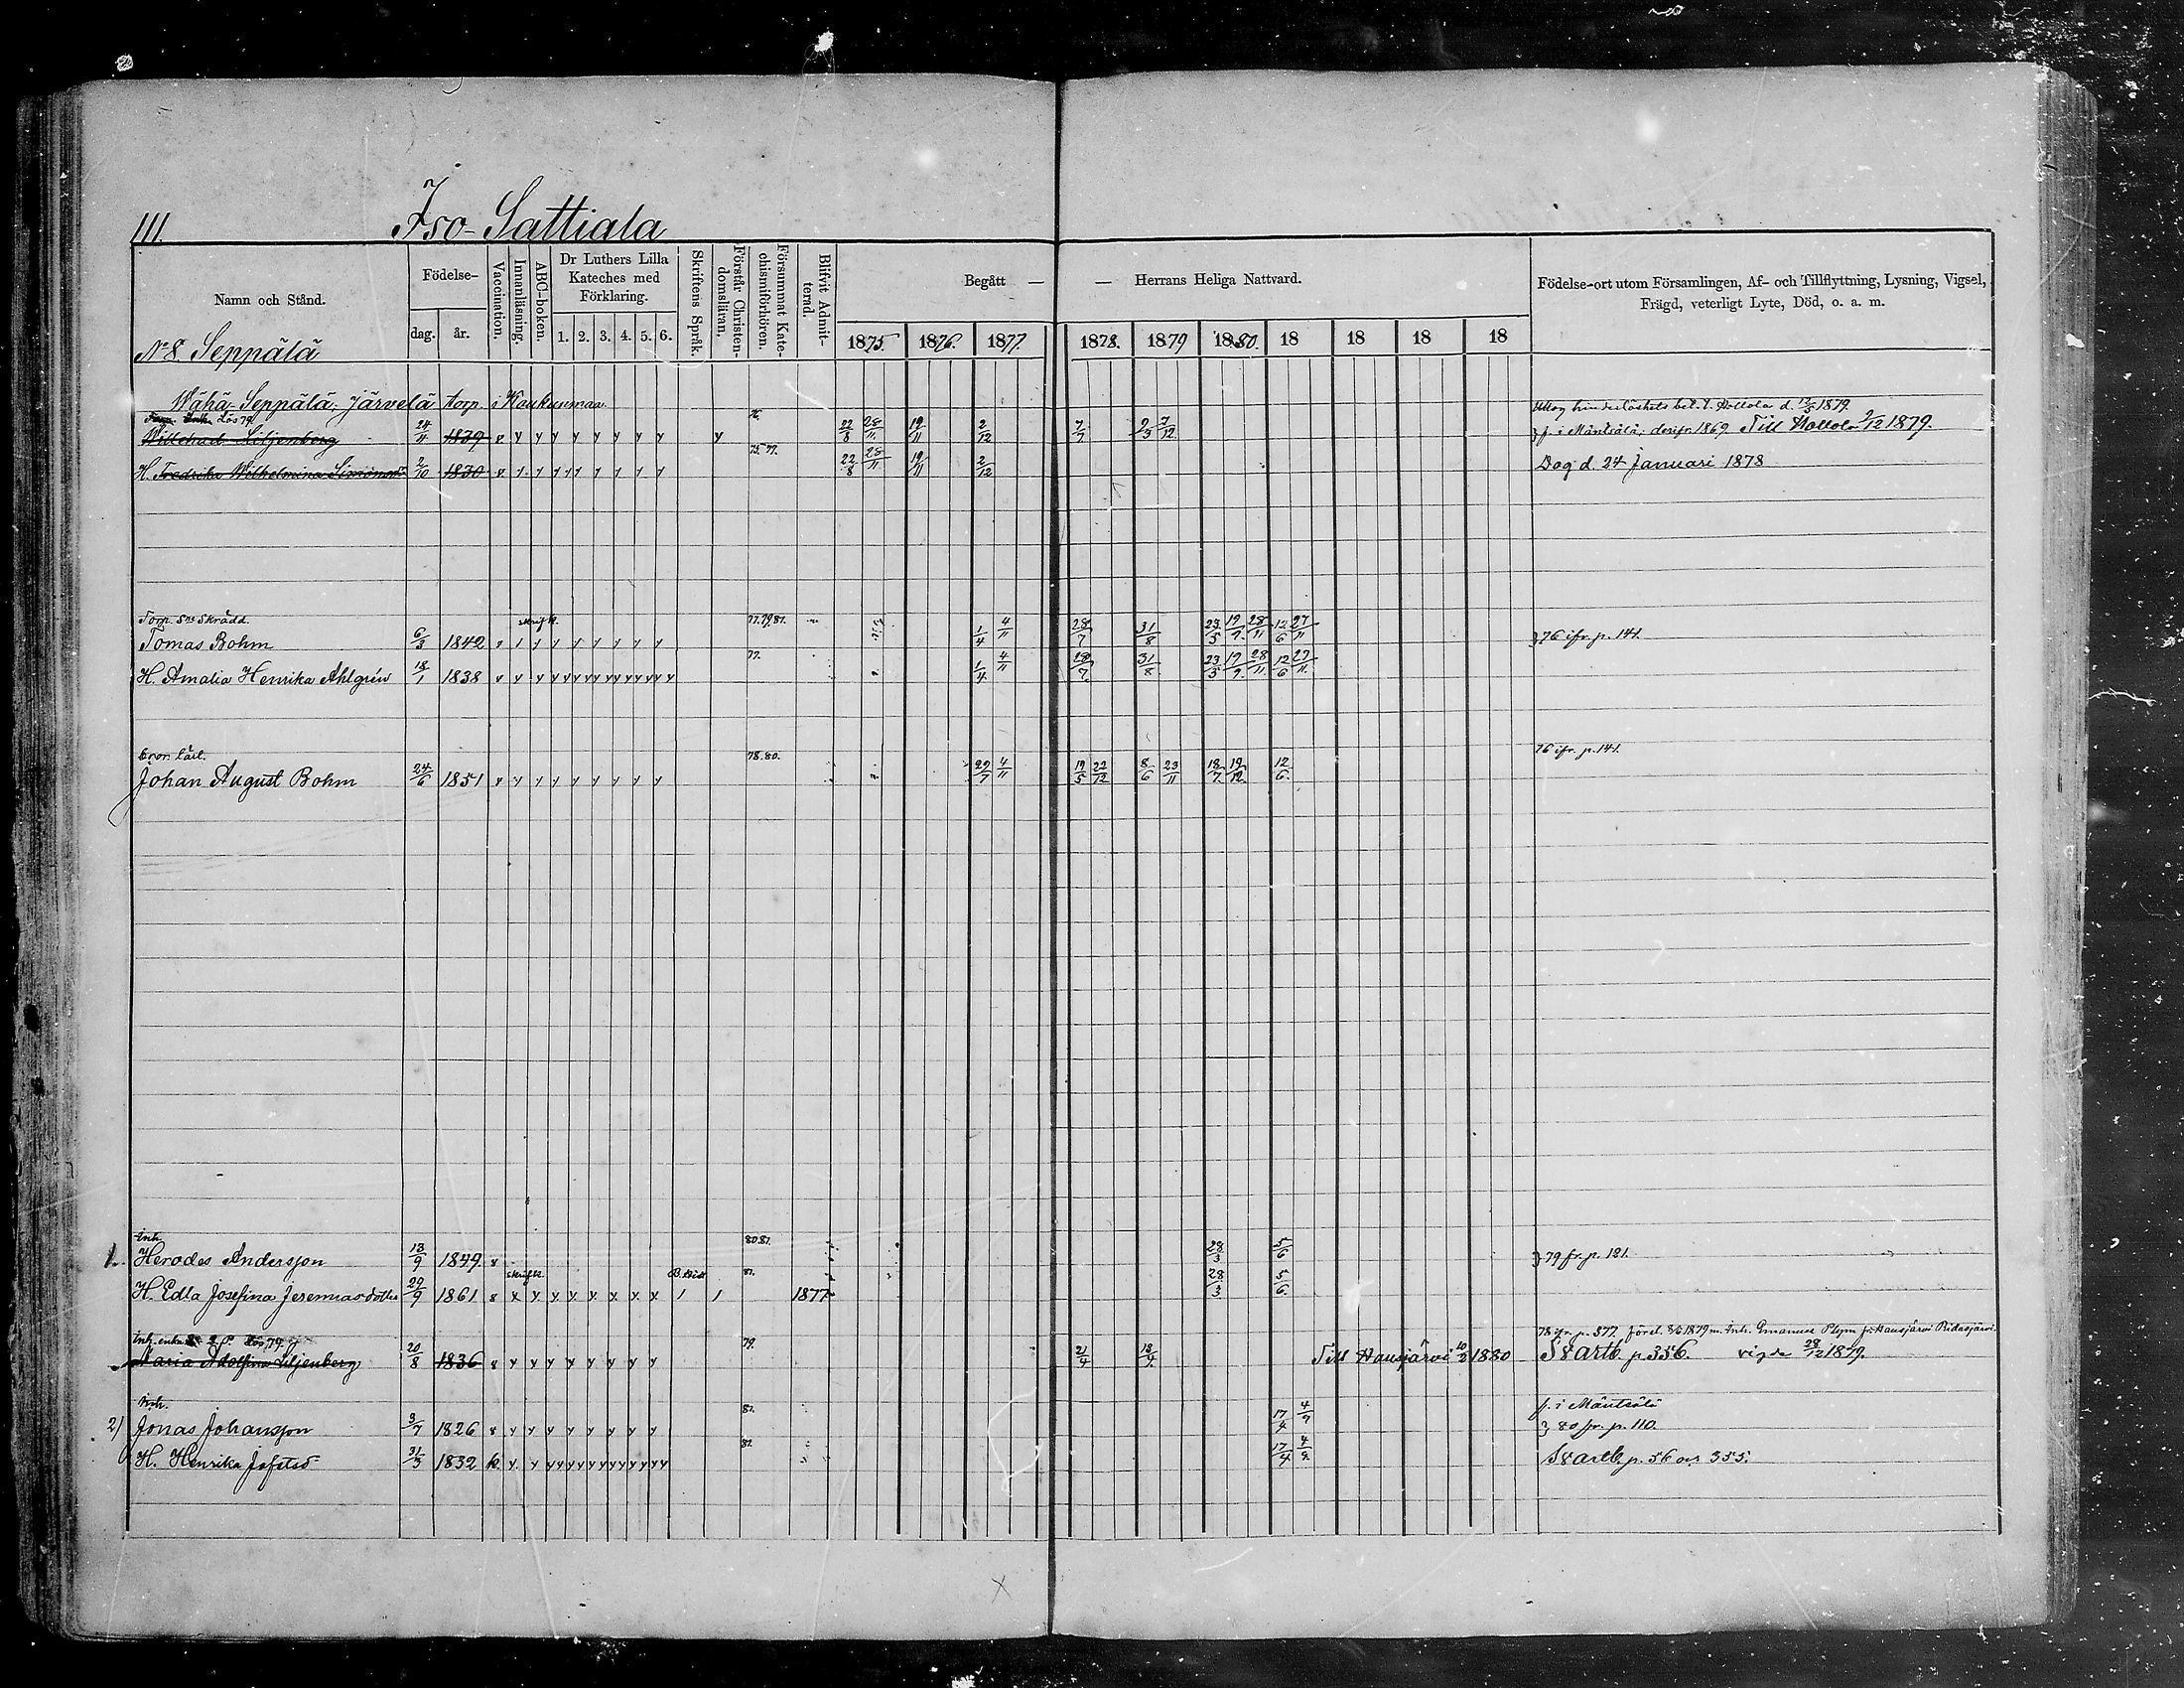 111. Iso-Sattiala
Namn och Stånd. Födelse- dag. år. Vaccination. Innanläsning. ABC-boken. Dr Luthers Lilla Kateches med Förklaring. 1. 2. 3. 4. 5. 6. Skriftens Språk. Förstår Christendomsläran. Försummat Katechismiförhören. Blifvit Admitterad. Begått — — Herrans Heliga Nattvard. Födelse-ort utom Församlingen, Af- och Tillflyttning, Lysning, Vigsel, Frägd, veterligt Lyte, Död, o. a. m.
1875. 1876. 1877. 1878. 1879 1880. 18 18 18 18
No 8. Seppälä
Wähä-Seppälä, Järvelä torp. i Koukunmaa
Uttog hinderlöshets bet. t. Hollola d. 12/5 1879.
Torp. Enkl. Lös 79. 76.
Willehad Liljenberg 24/11 1839 v y y y y y y y y y 22/8 28/11 19/11 2/12 7/7 9/3 7/12 f. i Mäntsälä; derifr. 1869. Till Hollola 9/12 1879.
75. 77.
H. Fredrika Wilhelmina 2/10 1830 v y y y y y y y y 22/8 28/11 19/11 2/12 Dog d. 24 Januari 1878
Torp. Sns Skrädd. skrifk. 77. 79. 81.
Tomas Bohm 6/3 1842 v y y y y y y y y 1/4 4/11 28/7 31/8 23/5 19/9 28/11 12/6 27/11 76 ifr. p. 141.
77.
H. Amalia Henrika Ahlgrén 18/1 1838 v y y y y y y y y y y y y y y 1/4 4/11 28/7 31/8 23/5 19/9 28/11 12/6 27/11
bror. 78. 80. 76 ifr. p. 141.
Johan August Bohm 24/6 1851 v y y y y y y y y 29/7 4/11 19/5 22/12 8/6 23/11 18/7 19/12 12/6
Inh. 80 81.
1. Herodes Andersson 13/9 1849 v 28/3 5/6 79 fr. p. 121.
skrifk. 81.
H. Edla Josefina Jeremiasdotter 29/9 1861 v x x x x x x x x 1 1 1877 28/3 5/6
Inh. enka Lös 79. 79. 78 ifr. p. 377. 1879 m. Inh. Emanuel fr. Hausjärvi Ridasjärvi
Maria Adolfina Liljenberg 20/8 1836 v y y y y y y y y 21/4 13/4 Till Hausjärvi 10/2 1880 Svartb. p. 356. vigde 28/12 1879.
Inh. 81. f. i Mäntsälä
2) Jonas Johansson 3/7 1826 v y y y y y y y y 17/4 4/9 80 fr. p. 110.
81.
H. Henrika Jofetsd 31/3 1832 k y y y y y y y y y y y y y 17/4 4/9 Svartb. p. 56 och 355.